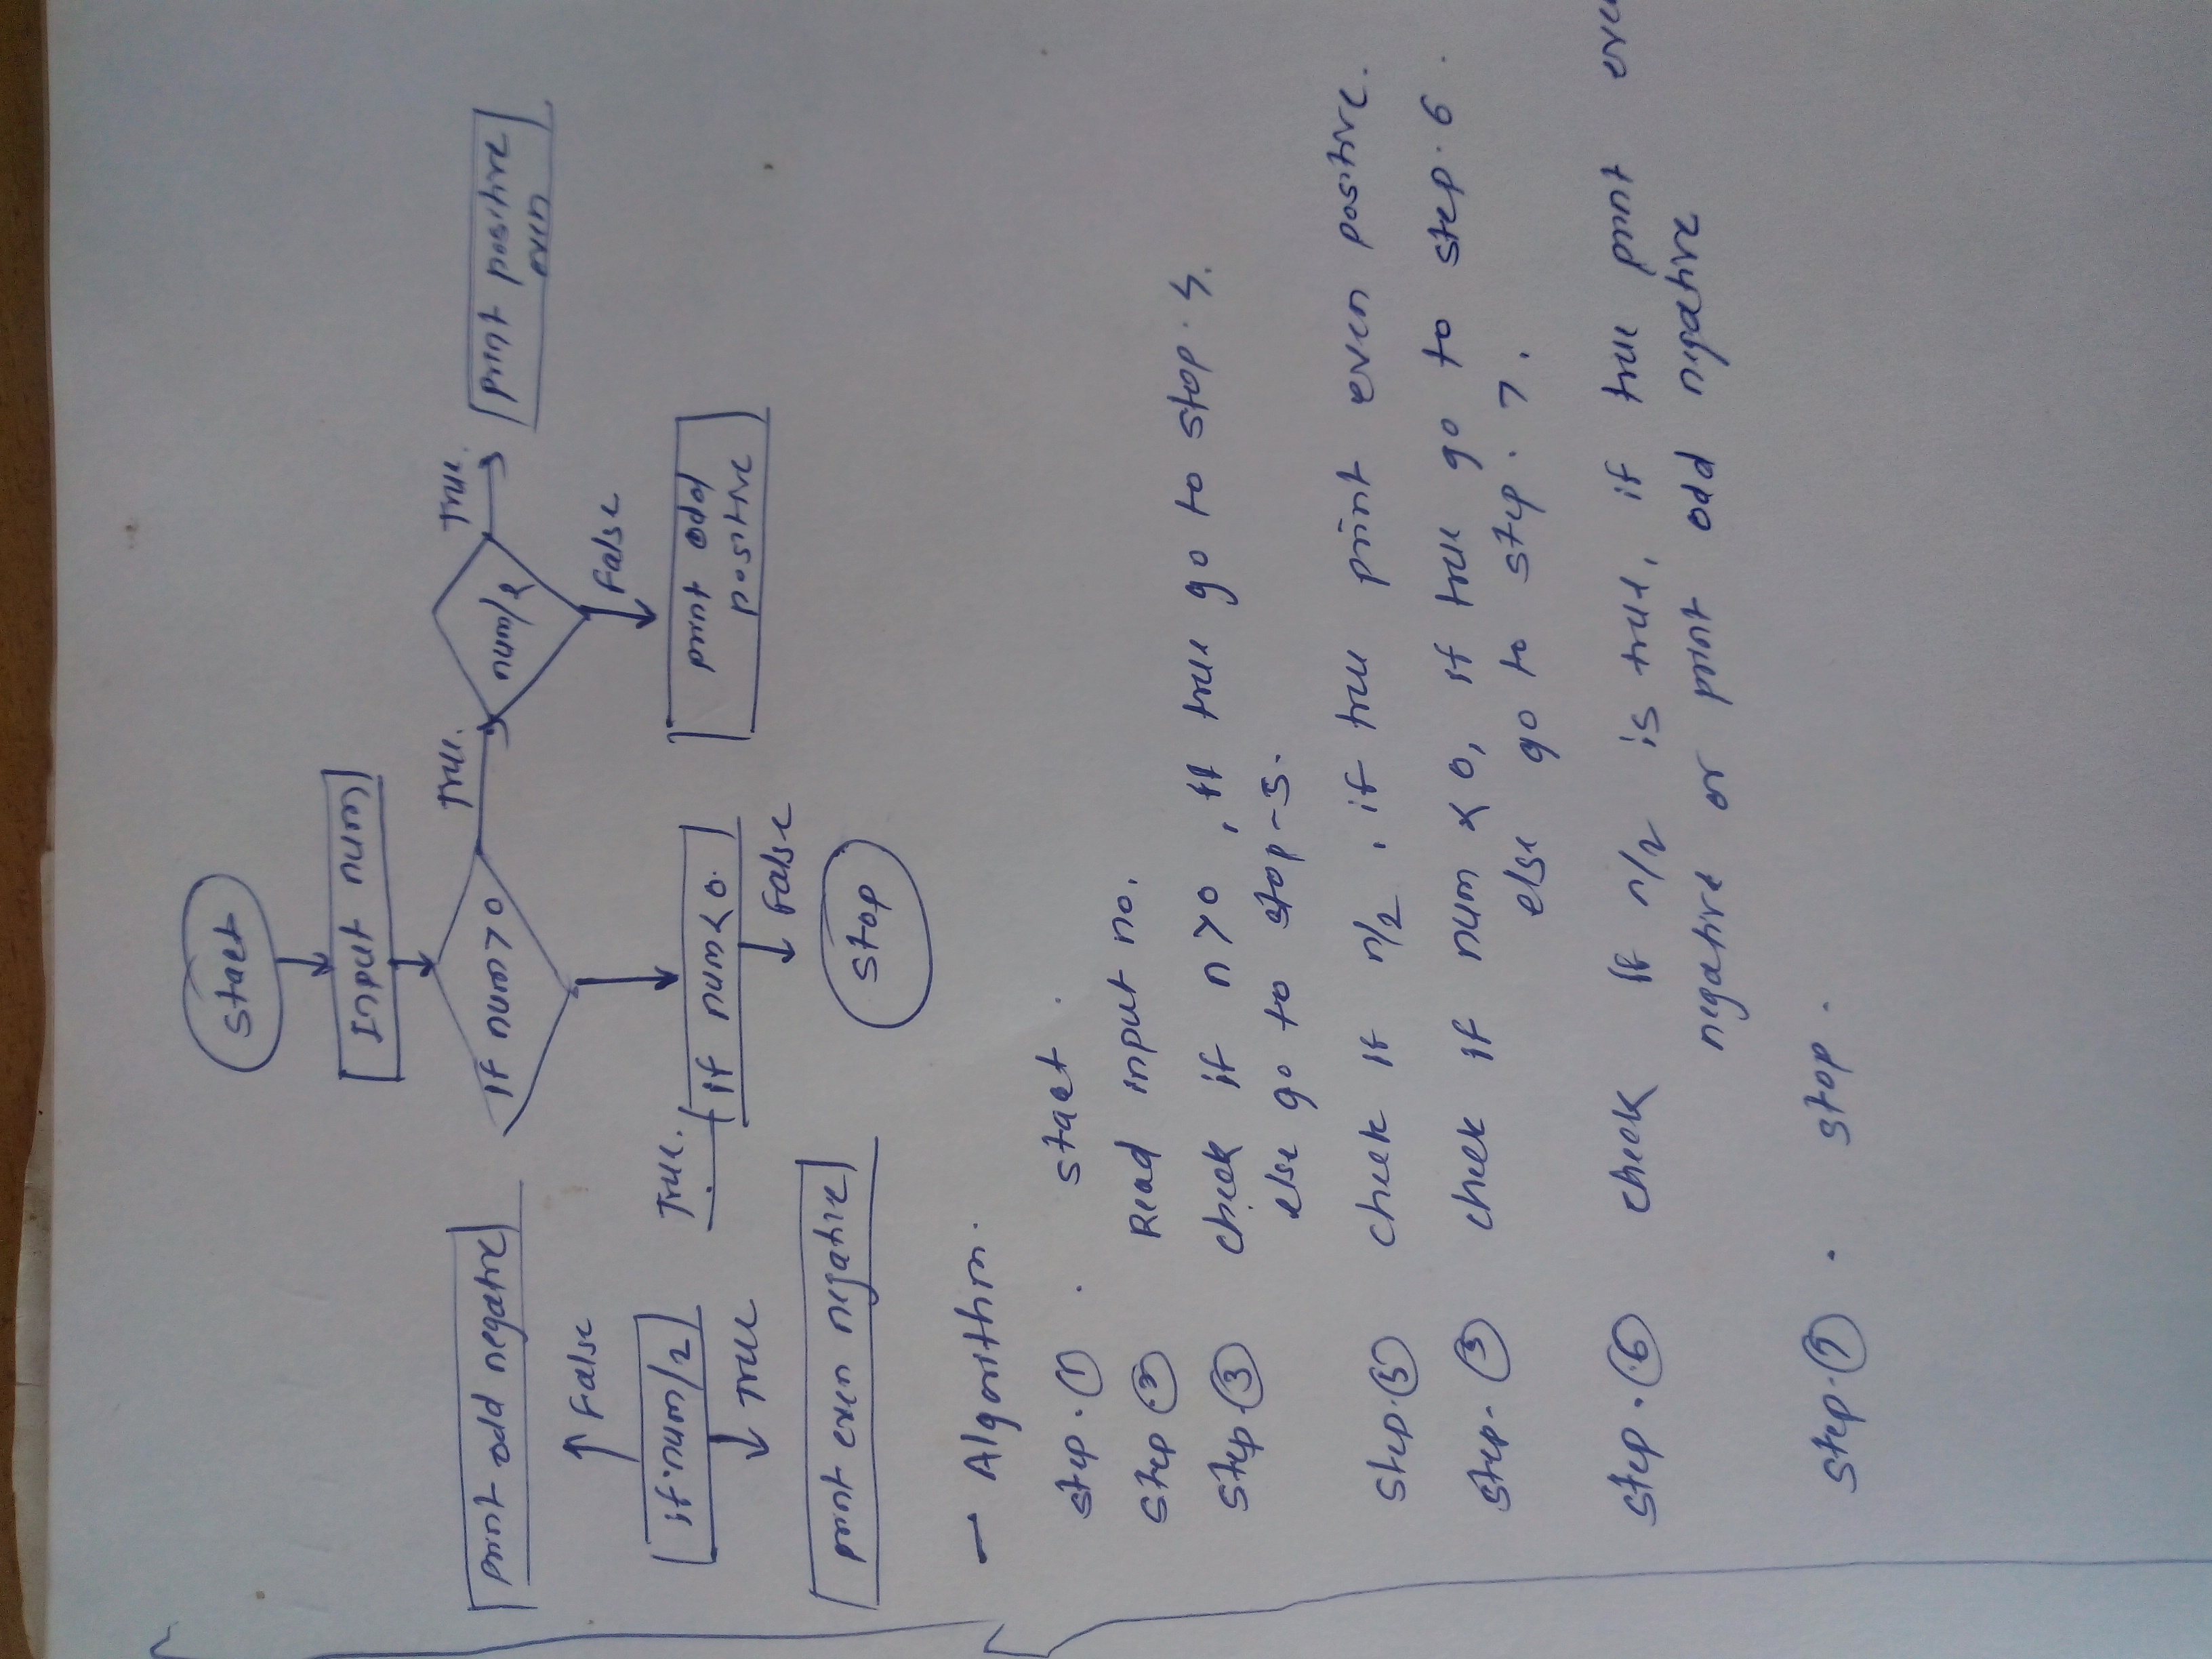 Start
Input num
if num > 0
True.
num/2
True.
print positive
even
False
print odd
positive
if num < 0.
True.
False
Stop
print odd negative
False
if num/2
True
print even negative
- Algorithm.
Step. 1 . start .
Step 2 Read input no.
Step. 3 check if n > 0 , if true go to stop. 4.
else go to stop - 5.
Step. 5 check if n/2 , if true print even positive.
Step. check if num < 0, if true go to step. 6 .
else go to step. 7 .
Step. 6 check if n/2 is true, if true print
negative or print odd negative
Step. 7 . stop .